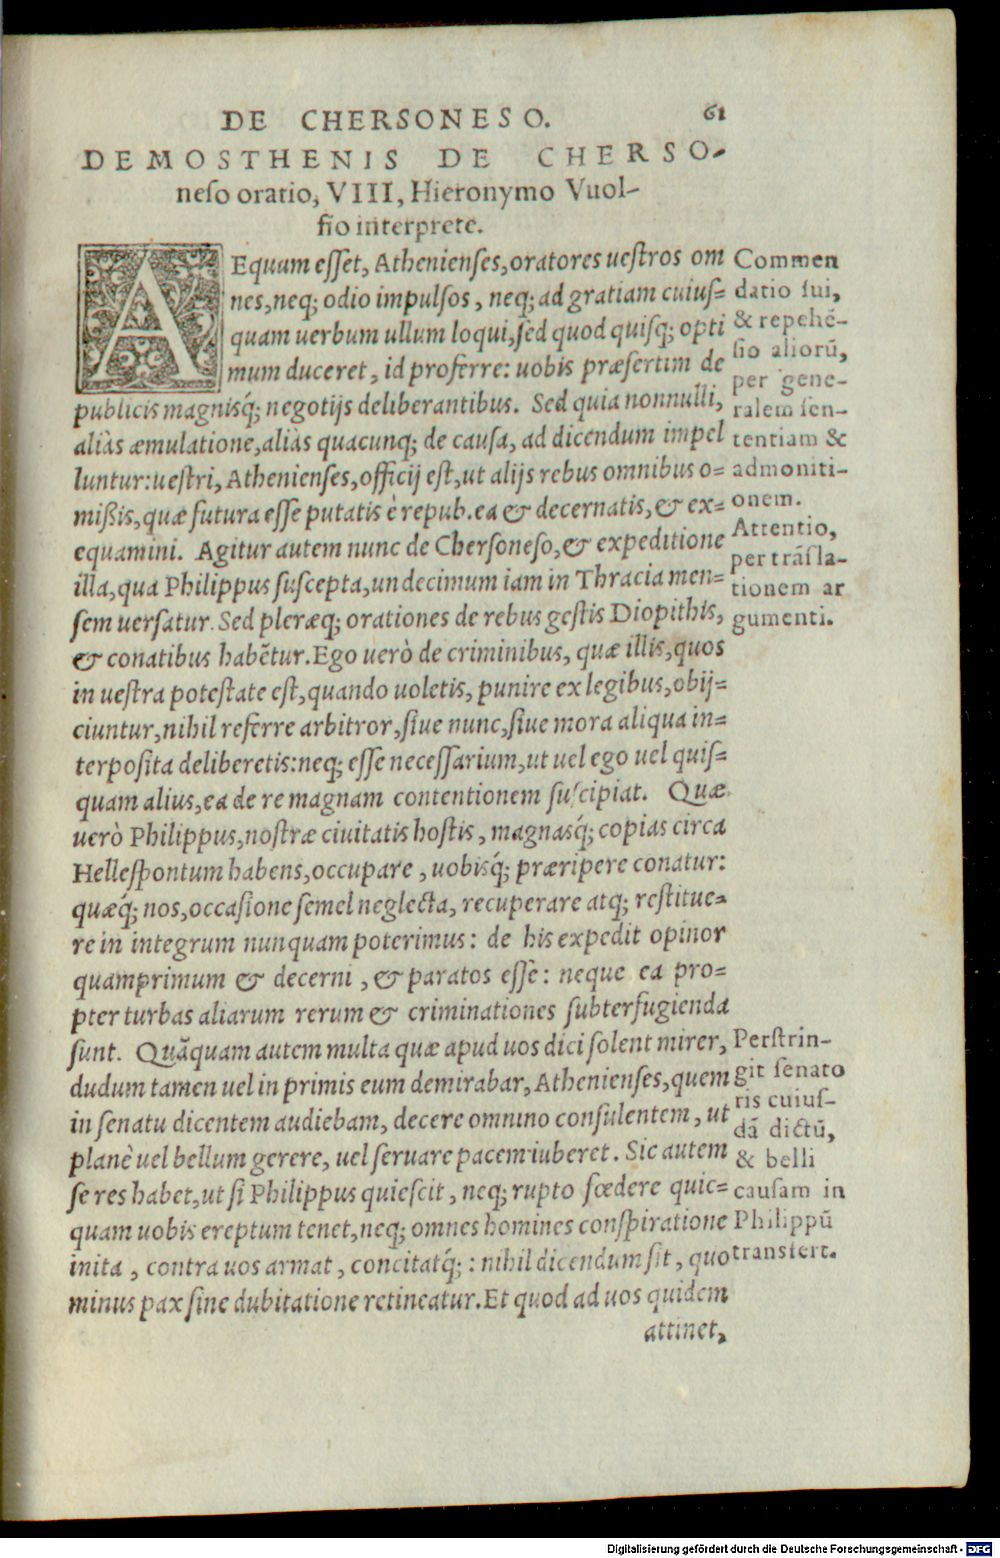 DE CHERSONESO.
61
DEMOSTHENIS DE CHERSO-
neso oratio, VIII, Hieronymo Vuol-
fio interprete.
AEquum esset, Athenienses, oratores uestros om
nes, neq; odio impulsos, neq; ad gratiam cuius-
quam uerbum ullum loqui, sed quod quisq; opti
mum duceret, id proferre: uobis præsertim de
publicis magnisq́; negotijs deliberantibus. Sed quia nonnulli,
aliàs æmulatione, aliàs quacunq; de causa, ad dicendum impel
luntur: uestri, Athenienses, officij est, ut alijs rebus omnibus o-
mißis, quæ futura esse putatis è repub. ea & decernatis, & ex-
equamini. Agitur autem nunc de Chersoneso, & expeditione
illa, qua Philippus suscepta, undecimum iam in Thracia men-
sem uersatur. Sed pleræq; orationes de rebus gestis Diopithis,
& conatibus habētur. Ego uerò de criminibus, quæ illis, quos
in uestra potestate est, quando uoletis, punire ex legibus, obij-
ciuntur, nihil referre arbitror, siue nunc, siue mora aliqua in-
terposita deliberetis: neq; esse necessarium, ut uel ego uel quis-
quam alius, ea de re magnam contentionem suscipiat. Quæ
uerò Philippus, nostræ ciuitatis hostis, magnasq́; copias circa
Hellespontum habens, occupare, uobisq́; præripere conatur:
quæq́; nos, occasione semel neglecta, recuperare atq; restitue-
re in integrum nunquam poterimus: de his expedit opinor
quamprimum & decerni, & paratos esse: neque ea pro-
pter turbas aliarum rerum & criminationes subterfugienda
sunt. Quāquam autem multa quæ apud uos dici solent mirer,
dudum tamen uel in primis eum demirabar, Athenienses, quem
in senatu dicentem audiebam, decere omnino consulentem, ut
planè uel bellum gerere, uel seruare pacem iuberet. Sic autem
se res habet, ut si Philippus quiescit, neq; rupto fœdere quic-
quam uobis ereptum tenet, neq; omnes homines conspiratione
inita, contra uos armat, concitatq́;: nihil dicendum sit, quo
minus pax sine dubitatione retineatur. Et quod ad uos quidem
attinet,
Commen
datio sui,
& repehē-
sio aliorū,
per gene-
ralem sen-
tentiam &
admoniti-
onem.
Attentio,
per trāsla-
tionem ar
gumenti.
Perstrin-
git senato
ris cuius-
dā dictū,
& belli
causam in
Philippū
transfert.
Digitalisierung gefördert durch die Deutsche Forschungsgemeinschaft - DFG